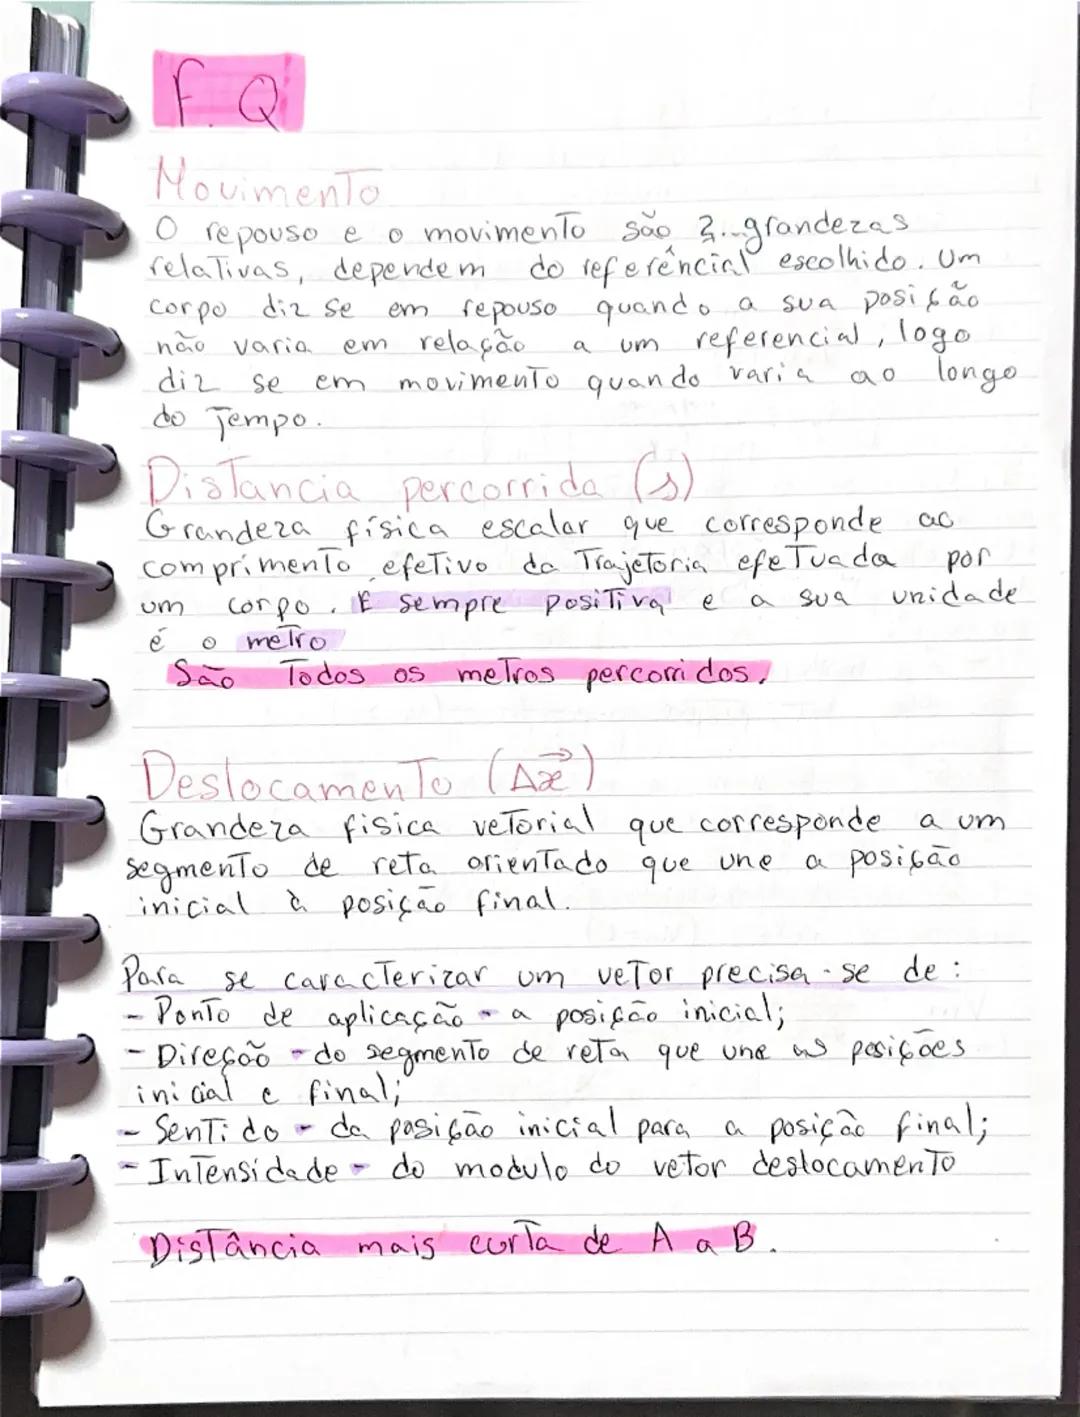 F. Q
Movimento
O repouso e o movimento são 2 grandezas
relativas, dependem do referêncial escolhido. Um
corpo diz se em repouso quando a sua posição
não varia em relação a um referencial, logo
diz se em movimento quando varia ao longo
do Tempo.
Distancia percorrida (s)
Grandeza física escalar que corresponde ao
comprimento efetivo da Trajetoria efetuada por
um corpo. É sempre positiva e a sua unidade
é o metro
São Todos os metros percorridos.
Deslocamento (Δx⃗)
Grandeza fisica vetorial que corresponde a um
segmento de reta orientado que une a posição
inicial à posição final.
Para se caracterizar um vetor precisa-se de:
- Ponto de aplicação - a posição inicial;
- Direção - do segmento de reta que une as posições
inicial e final;
- Sentido - da posição inicial para a posição final;
- Intensidade - do modulo do vetor deslocamento
Distância mais curta de A a B.